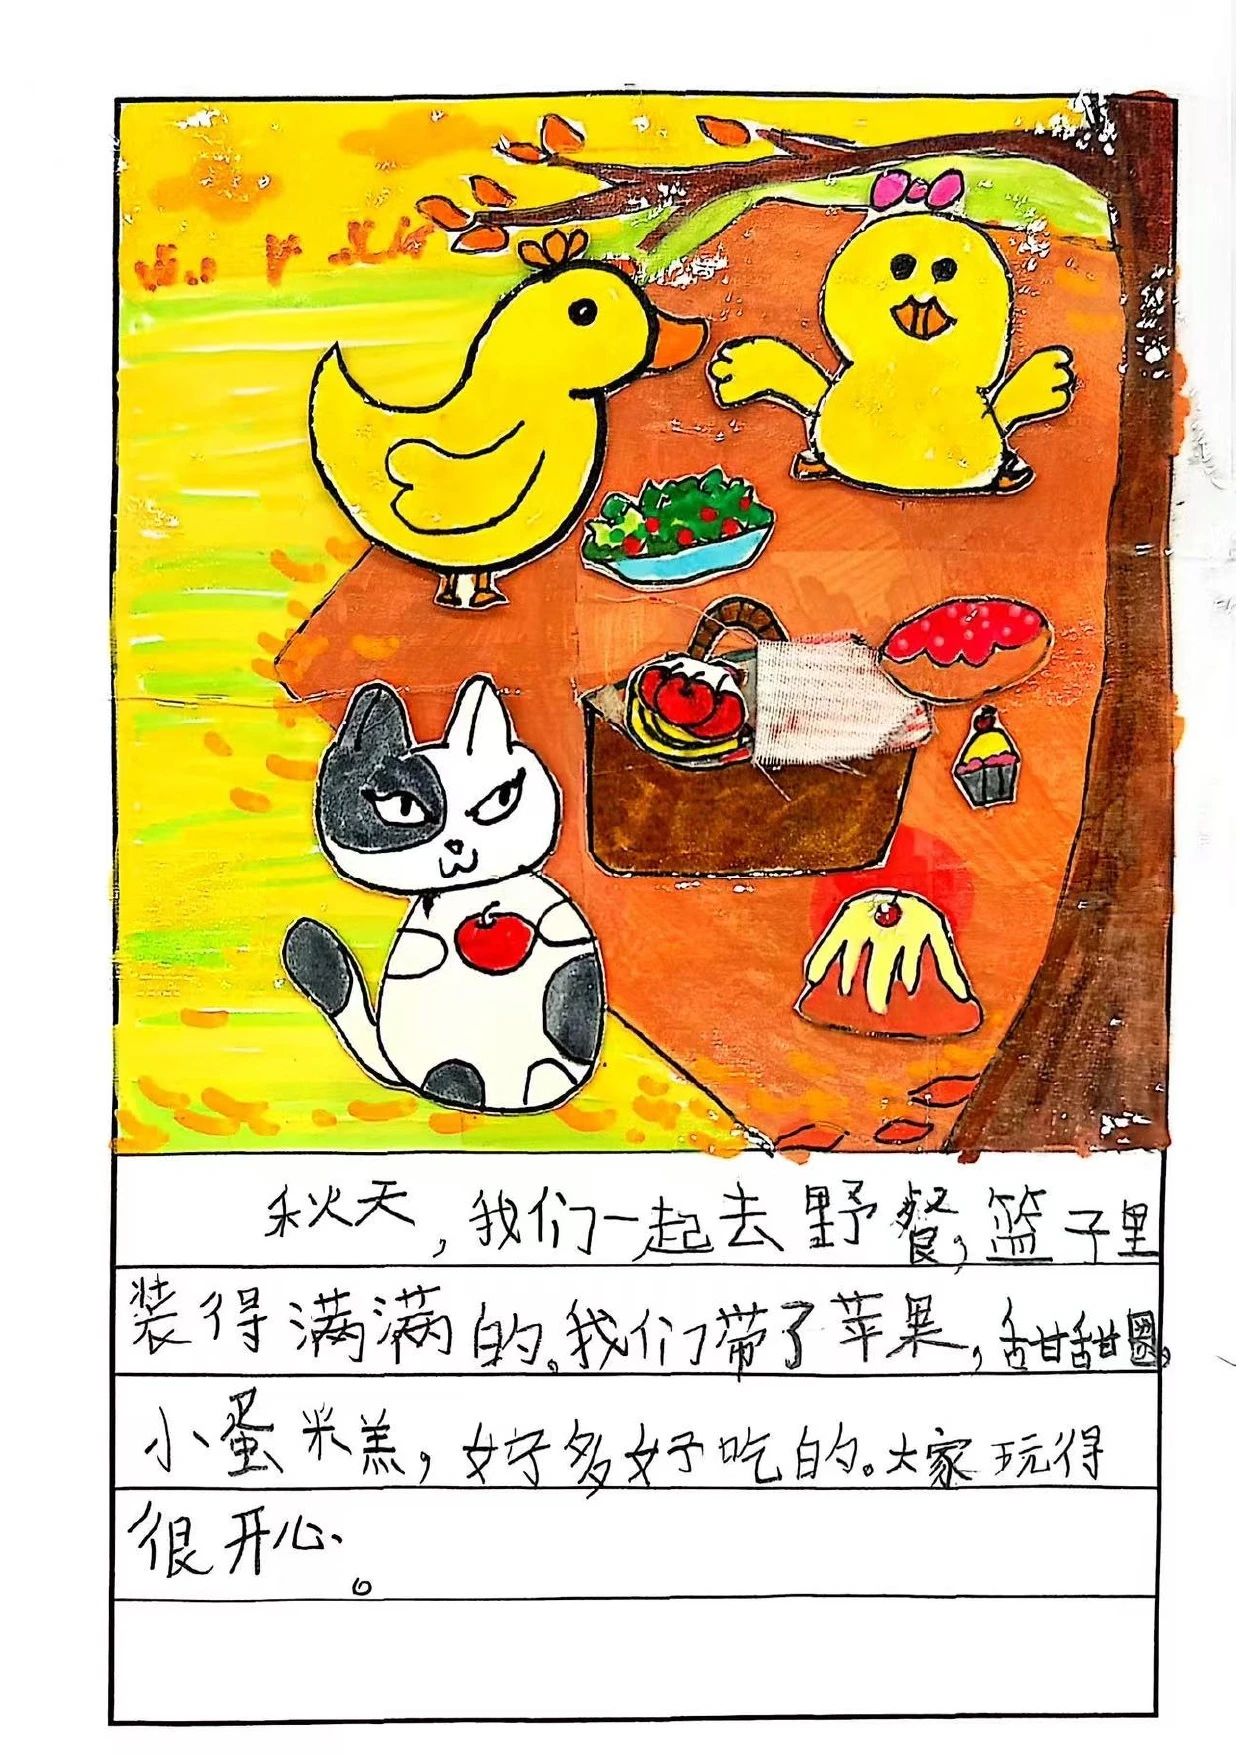 秋天,我们一起去野餐,篮子里
装得满满的。我们带了苹果,甜甜圈,
小蛋糕,好多好吃的。大家玩得
很开心。